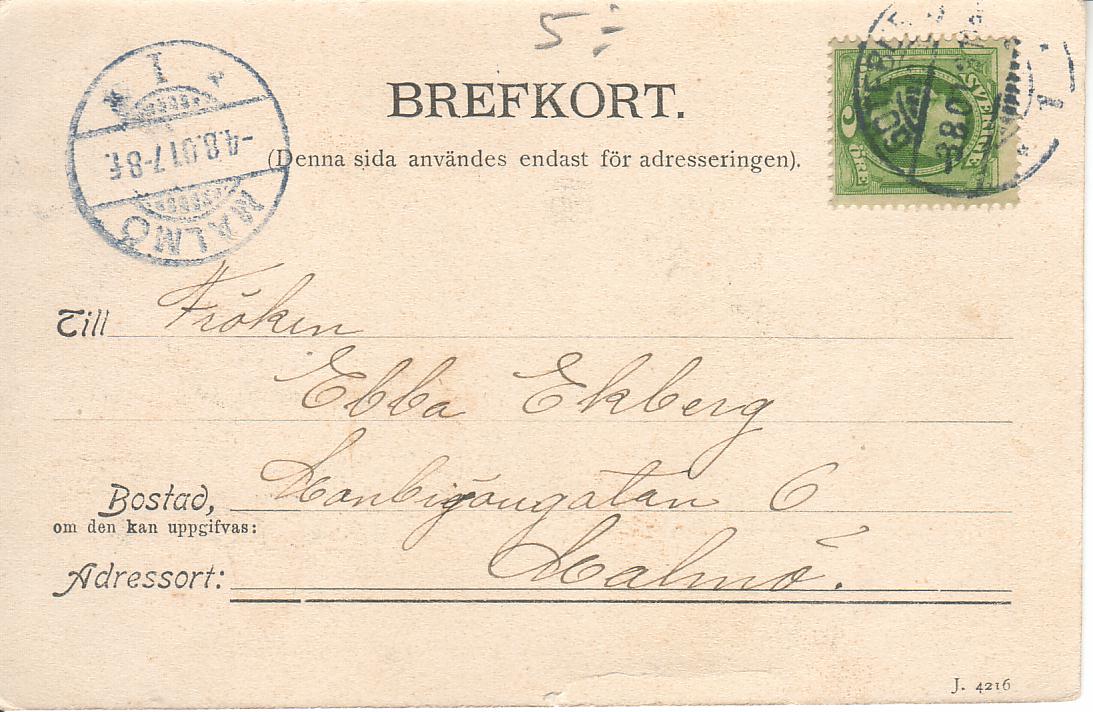 5 ÷
BREFKORT.
(Denna sida användes endast för adresseringen).
1
-4.8.01.7-8 f.
MALMÖ
SVERIGE
ÖRE
1
Till Fröken
Ebba Ekberg
Bostad, 6
om den kan uppgifvas:
Adressort: Malmö.
J. 4216